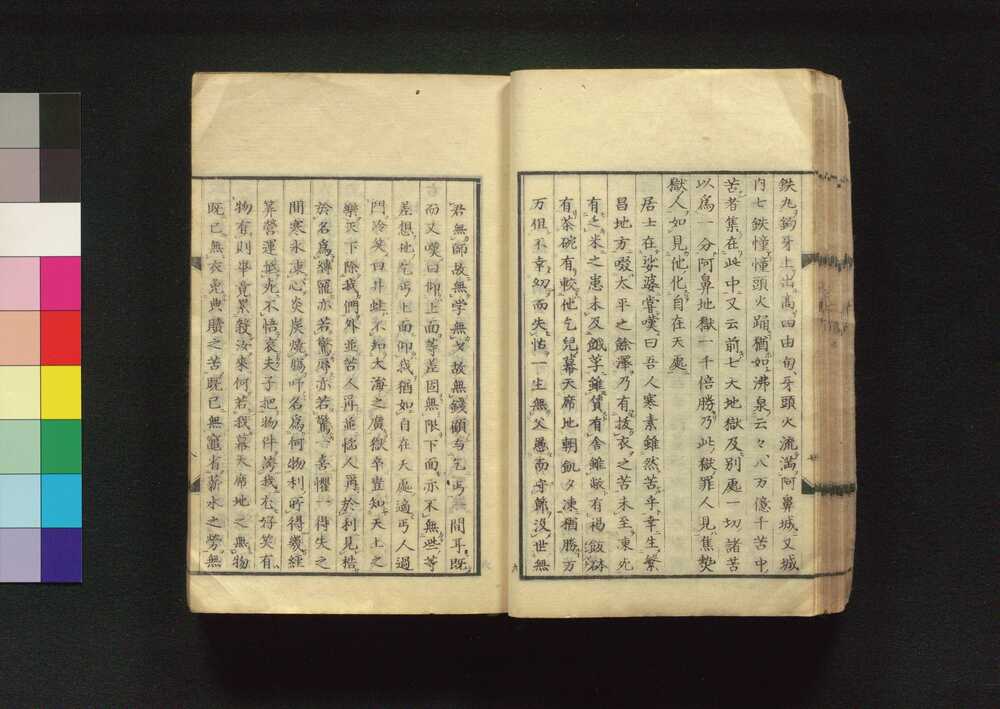 鉄丸鉤牙上出高四由旬牙頭火流満阿鼻城又城
内七鉄幢幢頭火踊猶如沸泉云々八万億千苦中
苦者集在此中又云前七大地獄及別處一切諸苦
以為一分阿鼻地獄一千倍勝乃此獄罪人見焦熱
獄人如見他化自在天處
居士在娑婆嘗嘆曰吾人寒素雖然苦乎幸生繁
昌地方啜太平之餘澤乃有抜衣之苦未至凍死
有之米之患未及餓莩雖賃有舎雖敝有褐飯砵
有茶碗有較他乞児幕天席地朝飢夕凍猶勝万
万但不幸幼而失怙一生無父愚而守節没世無
君無師故無学無爻故無錢顧与乞丐無間耳既
而又嘆曰仰上面等差固無限下面亦不無些等
差想地乞丐上面仰我猶如自在天處適丐人過
門冷笑曰井蛙不知大海之廣獄卒豈知天上之
樂天下除我們外並苦人再並愁人再於利見梏
於名為縛寵亦若驚辱亦若驚一喜懼一得失之
間寒氷凍心炎炭燒腸吁名為何物利所得幾經
算營運無光不悟哀夫子把物件誇我尤好笑有
物有則畢竟累殺汝來何若我幕天席地之無物
既已無衣免典贖之苦既已無竈有薪水之勞無